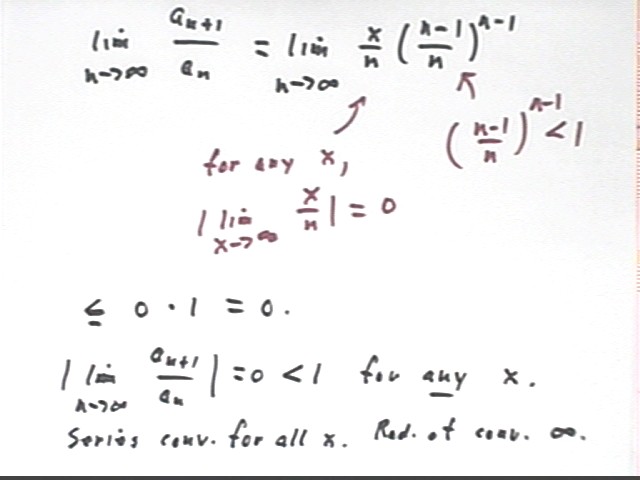 lim n→∞ a_{n+1}/a_n = lim n→∞ x/n ((n-1)/n)^{n-1}
((n-1)/n)^{n-1} < 1
for any x,
| lim x→∞ x/n | = 0
≤ 0 · 1 = 0.
| lim n→∞ a_{n+1}/a_n | = 0 < 1 for any x.
Series conv. for all x. Rad. of conv. ∞.